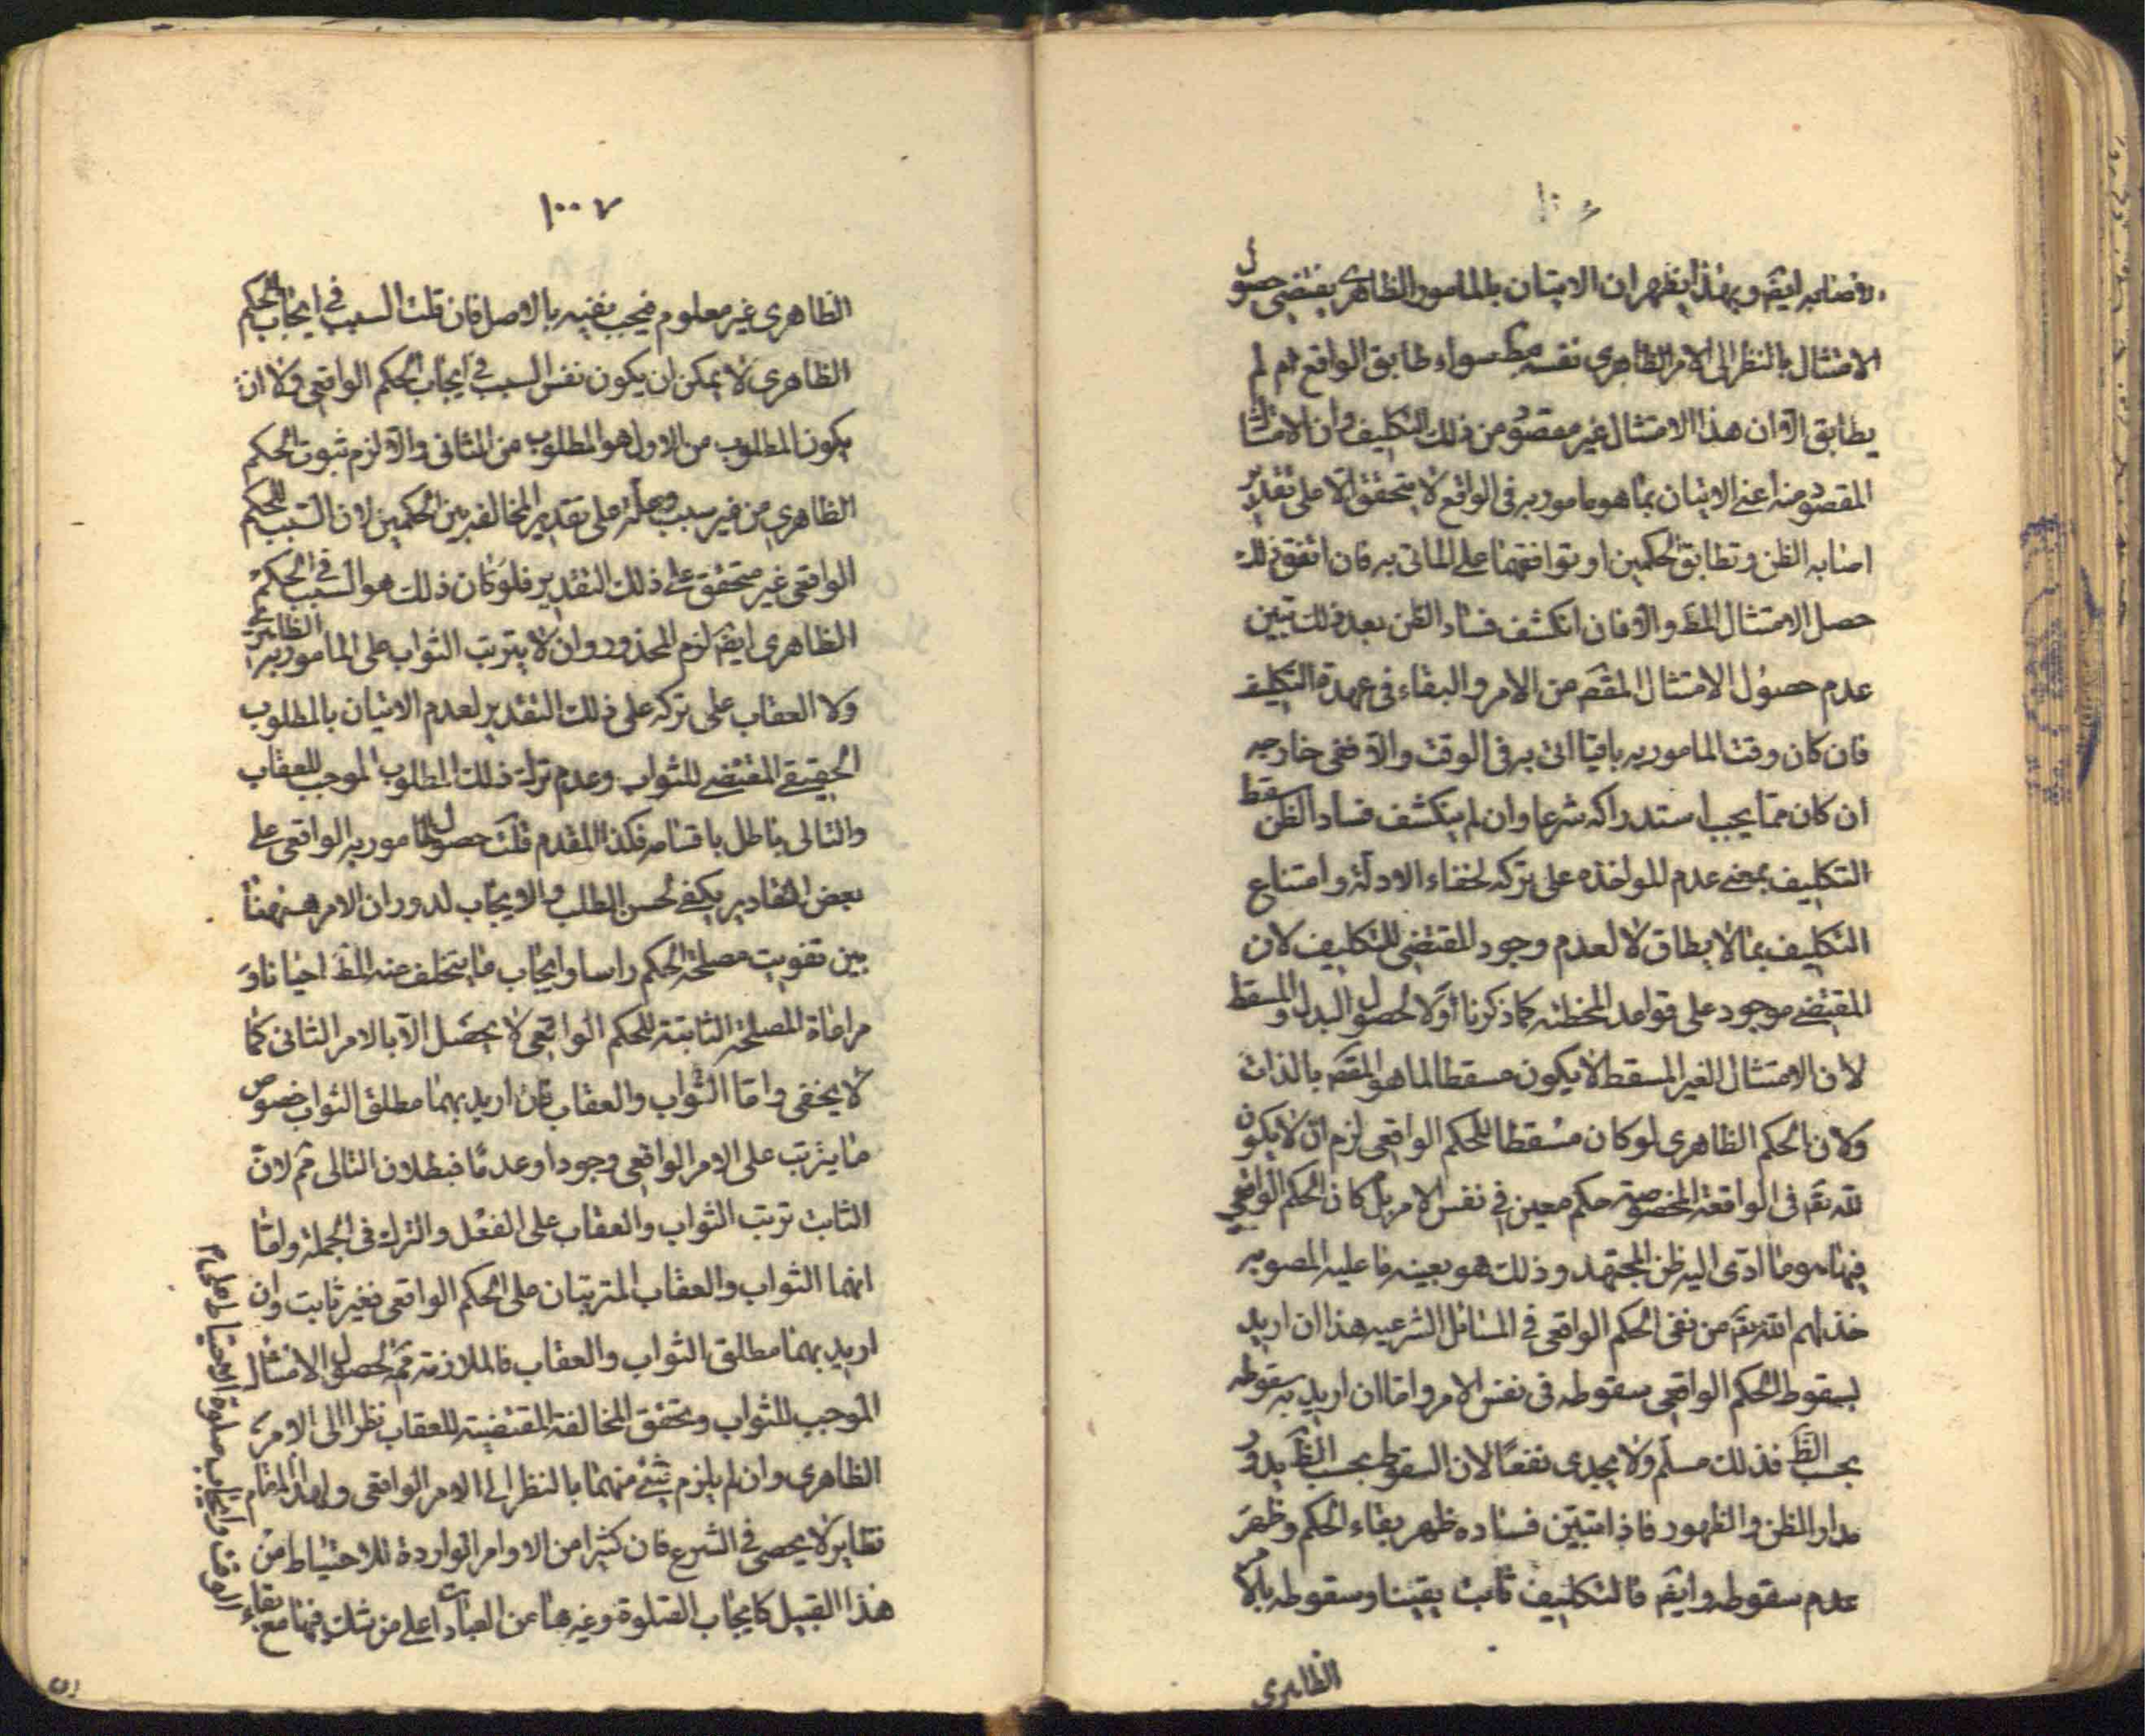 ايضا وبهذا يظهر ان الاتيان بالمامور الظاهرى يقتضى حصول
الامتثال بالنظر الى الامر الظاهرى نفسه مط سواء طابق الواقع ام لم
يطابق الا ان هذا الامتثال غير مقصود من ذلك التكليف وان الامتثال
المقصود منه اعنى الاتيان بما هو مامور به فى الواقع لا يتحقق الا على تقدير
اصابه الظن وتطابق الحكمين او توافقهما على الماتى به فان اتفق ذلك
حصل الامتثال المط والا فان انكشف فساد الظن بعد ذلك تبين
عدم حصول الامتثال المقص من الامر والبقاء فى عهدة التكليف
فان كان وقت المامور به باقيا اتى به فى الوقت والا ففى خارجه
ان كان مما يجب استدراكه شرعا وان لم ينكشف فساد الظن سقط
التكليف بمعنى عدم المواخذه على تركه لخفاء الادلة وامتناع
التكليف بما لا يطاق لا لعدم وجود المقتضى للتكليف لان
المقتضى موجود على قواعد المخطئه كما ذكرنا اولا لحصول البدل والمسقط
لان الامتثال الغير المسقط لا يكون مسقطا لما هو المقص بالذات
ولان الحكم الظاهرى لو كان مسقطا للحكم الواقعى لزم ان لا يكون
لله تقم فى الواقعة المخصوصة حكم معين فى نفس الامر بل كان الحكم الواقعى
فيها هو ما ادى اليه ظن المجتهد وذلك هو بعينه ما عليه المصوبه
خذلهم الله تقم من نفى الحكم الواقعى فى المسائل الشرعيه هذا ان اريد
بسقوط الحكم الواقعى سقوطه فى نفس الامر واما ان اريد به سقوطه
بحسب الظ فذلك مسلم ولا يجدى نفعا لان السقوط بحسب الظ يدور
مدار الظن والظهور فاذا تبين فساده ظهر بقاء الحكم وظهر
عدم سقوطه وايضا فالتكليف ثابت يقينا وسقوطه بالامر
الظاهرى
١٠٠٧
الظاهرى غير معلوم فيجب نفيه بالاصل فان قلت السبب فى ايجاب الحكم
الظاهرى لا يمكن ان يكون نفس السبب فى ايجاب الحكم الواقعى ولا ان
يكون المطلوب من الاول هو المطلوب من الثانى والا لزم ثبوت الحكم
الظاهرى من غير سبب وعلة على تقدير المخالفه بين الحكمين لان السبب للحكم
الواقعى غير متحقق على ذلك التقدير فلو كان ذلك هو السبب فى الحكم
الظاهرى ايضا لزم المحذور وان لا يترتب الثواب على المامور به الظاهرى
ولا العقاب على تركه على ذلك التقدير لعدم الاتيان بالمطلوب
الحقيقى المقتضى للثواب وعدم ترك ذلك المطلوب الموجب للعقاب
والتالى باطل باقسامه فكذا المقدم قلت حصول المامور به الواقعى على
بعض التقادير يكفى لحسن الطلب والايجاب لدوران الامر هنا
بين تفويت مصلحة الحكم راسا وايجاب ما يتخلف عنه المط احيانا و
مراعاة المصلحة الثابتة للحكم الواقعى لا يحصل الا بالامر الثانى كما
لا يخفى واما الثواب والعقاب فان اريد بهما مطلق الثواب خصوص
ما يترتب على الامر الواقعى وجودا وعدما فبطلان التالى مم لان
الثابت ترتب الثواب والعقاب على الفعل والترك فى الجملة واما
انهما الثواب والعقاب المترتبان على الحكم الواقعى فغير ثابت وان
اريد بهما مطلق الثواب والعقاب فالملازمة مم لحصول الامتثال
الموجب للثواب وتحقق المخالفة المقتضية للعقاب نظرا الى الامر
الظاهرى وان لم يلزم شئ منهما بالنظر الى الامر الواقعى ولهذا المقام
نظاير لا يحصى فى الشرع فان كثيرا من الاوامر الواردة للاحتياط من
هذا القبيل كايجاب الصلوة وغيرها من العبادات على من شك فيها مع بقاء
الوقت وايجاب صلوة الاحتياط على م